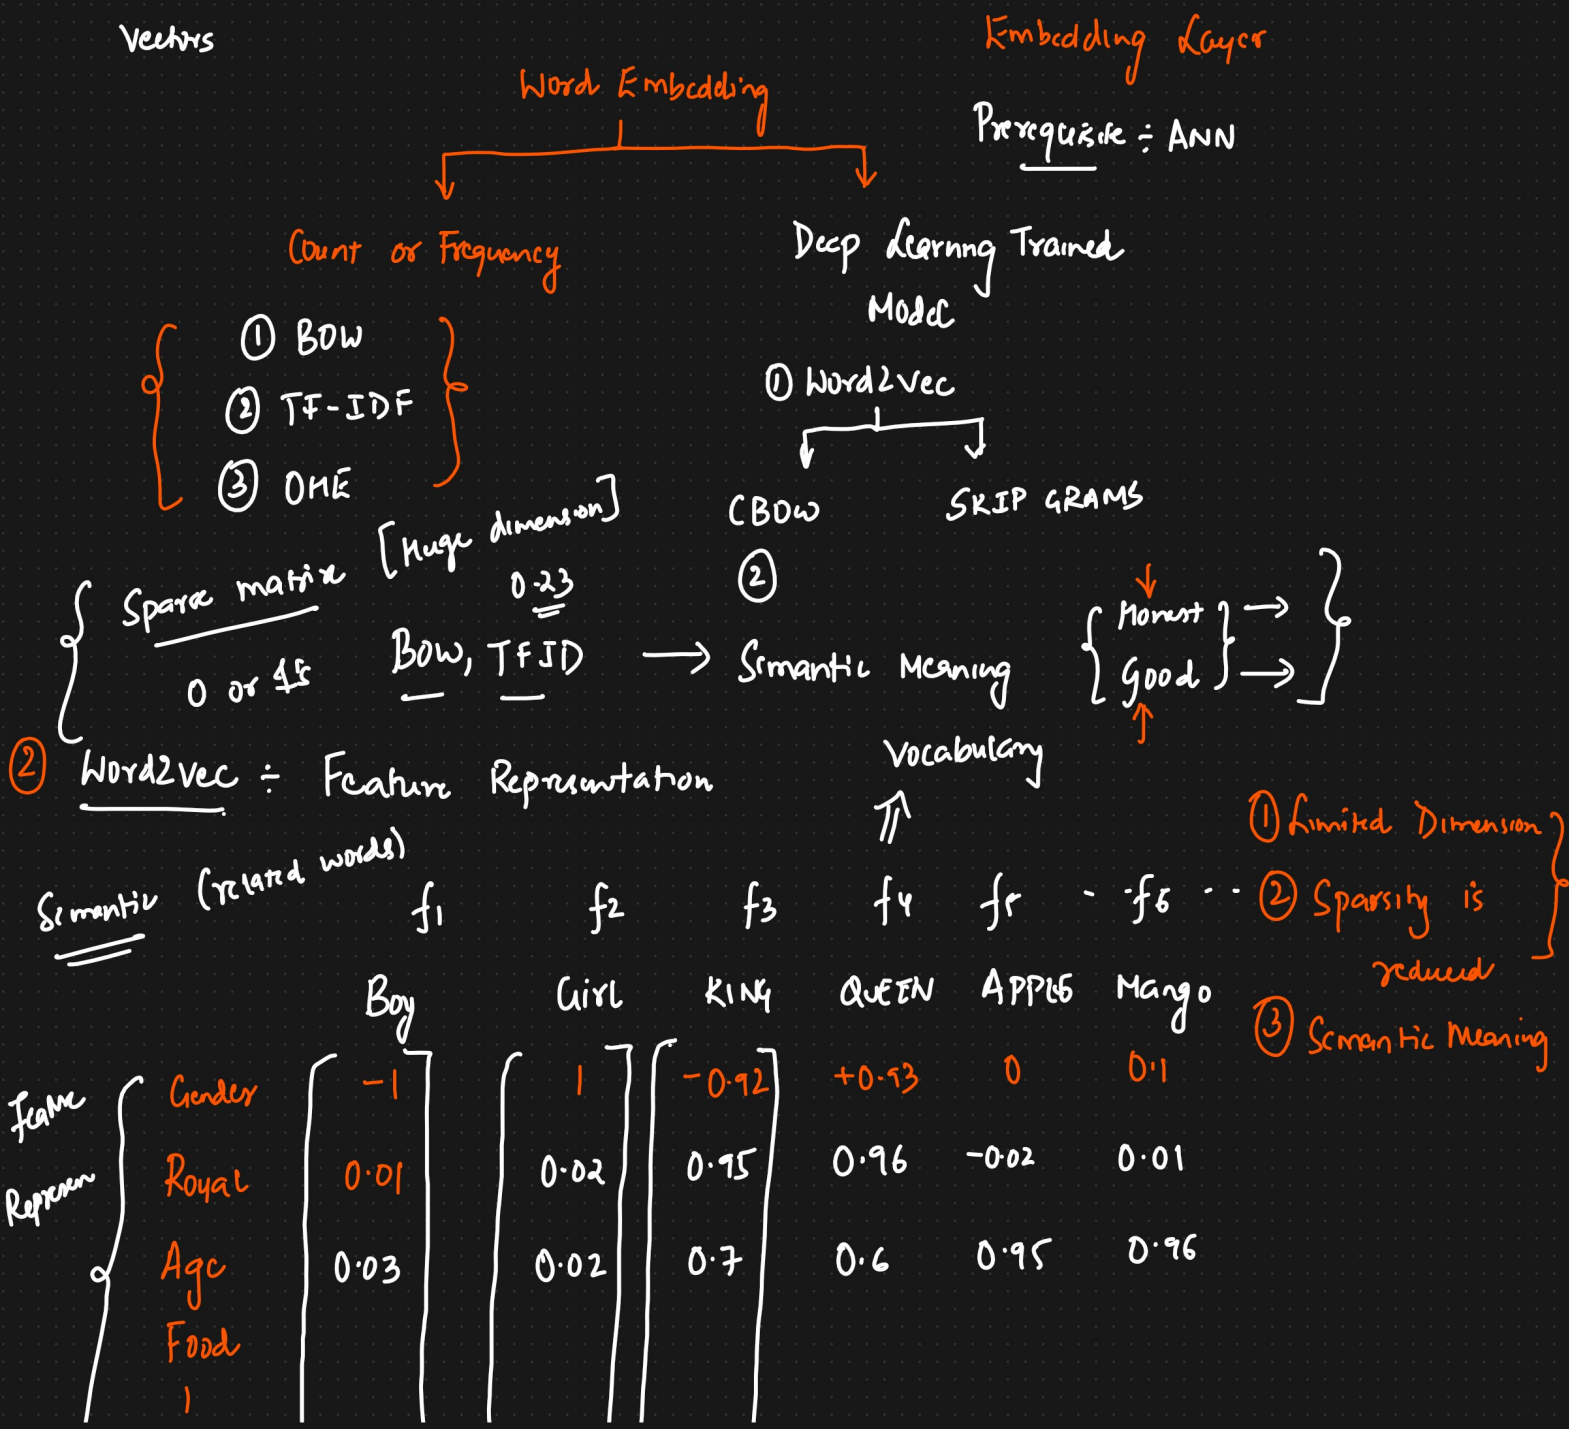 Vectors
Embedding Layer
Word Embedding
Prerequisite ÷ ANN
Count or Frequency
Deep Learnng Trained
Model
① BOW
② TF-IDF
③ OHE
① Word2Vec
CBOW
SKIP GRAMS
②
Sparse matrix [Huge dimension]
0.23
0 or 1s
BOW, TFID → Semantic Meaning
{ Honest } →
{ Good } →
② Word2vec ÷ Feature Representation
Vocabulary
Semantic (related words)
① Limited Dimension
② Sparsity is
reduced
③ Semantic Meaning
f1 f2 f3 f4 f5 - - f6 - -
Boy Girl KING QUEEN APPLE Mango
Feature
Represen
Gender -1 1 -0.92 +0.93 0 0.1
Royal 0.01 0.02 0.95 0.96 -0.02 0.01
Age 0.03 0.02 0.7 0.6 0.95 0.96
Food